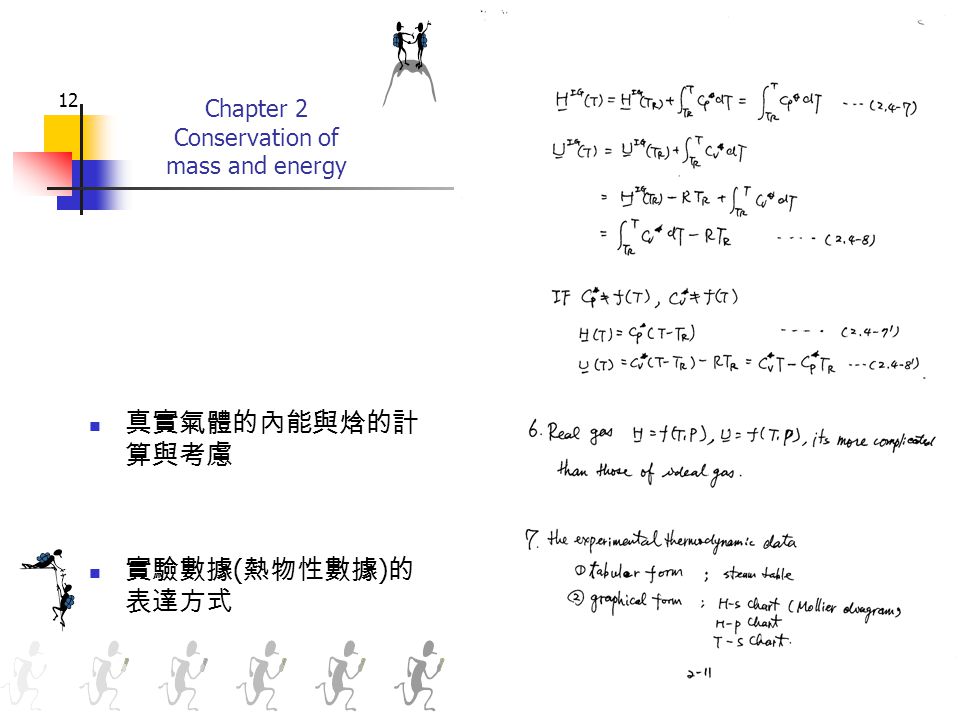 12
Chapter 2
Conservation of
mass and energy
真實氣體的內能與焓的計
算與考慮
實驗數據(熱物性數據)的
表達方式
H^IG(T) = H^IG(T_R) + ∫_{T_R}^{T} C_P* dT = ∫_{T_R}^{T} C_P* dT --- (2.4-7)
U^IG(T) = U^IG(T_R) + ∫_{T_R}^{T} C_V* dT
= H^IG(T_R) - RT_R + ∫_{T_R}^{T} C_V* dT
= ∫_{T_R}^{T} C_V* dT - RT_R ---- (2.4-8)
IF C_P* ≠ f(T), C_V* ≠ f(T)
H(T) = C_P*(T-T_R) ---- (2.4-7')
U(T) = C_V*(T-T_R) - RT_R = C_V*T - C_P*T_R --- (2.4-8')
6. Real gas H = f(T,P), U = f(T,P), its more complicated
than those of ideal gas.
7. the experimental thermodynamic data
① tabular form ; steam table
② graphical form ; H-s chart (Mollier diagram)
H-p chart
T-s chart.
2-11